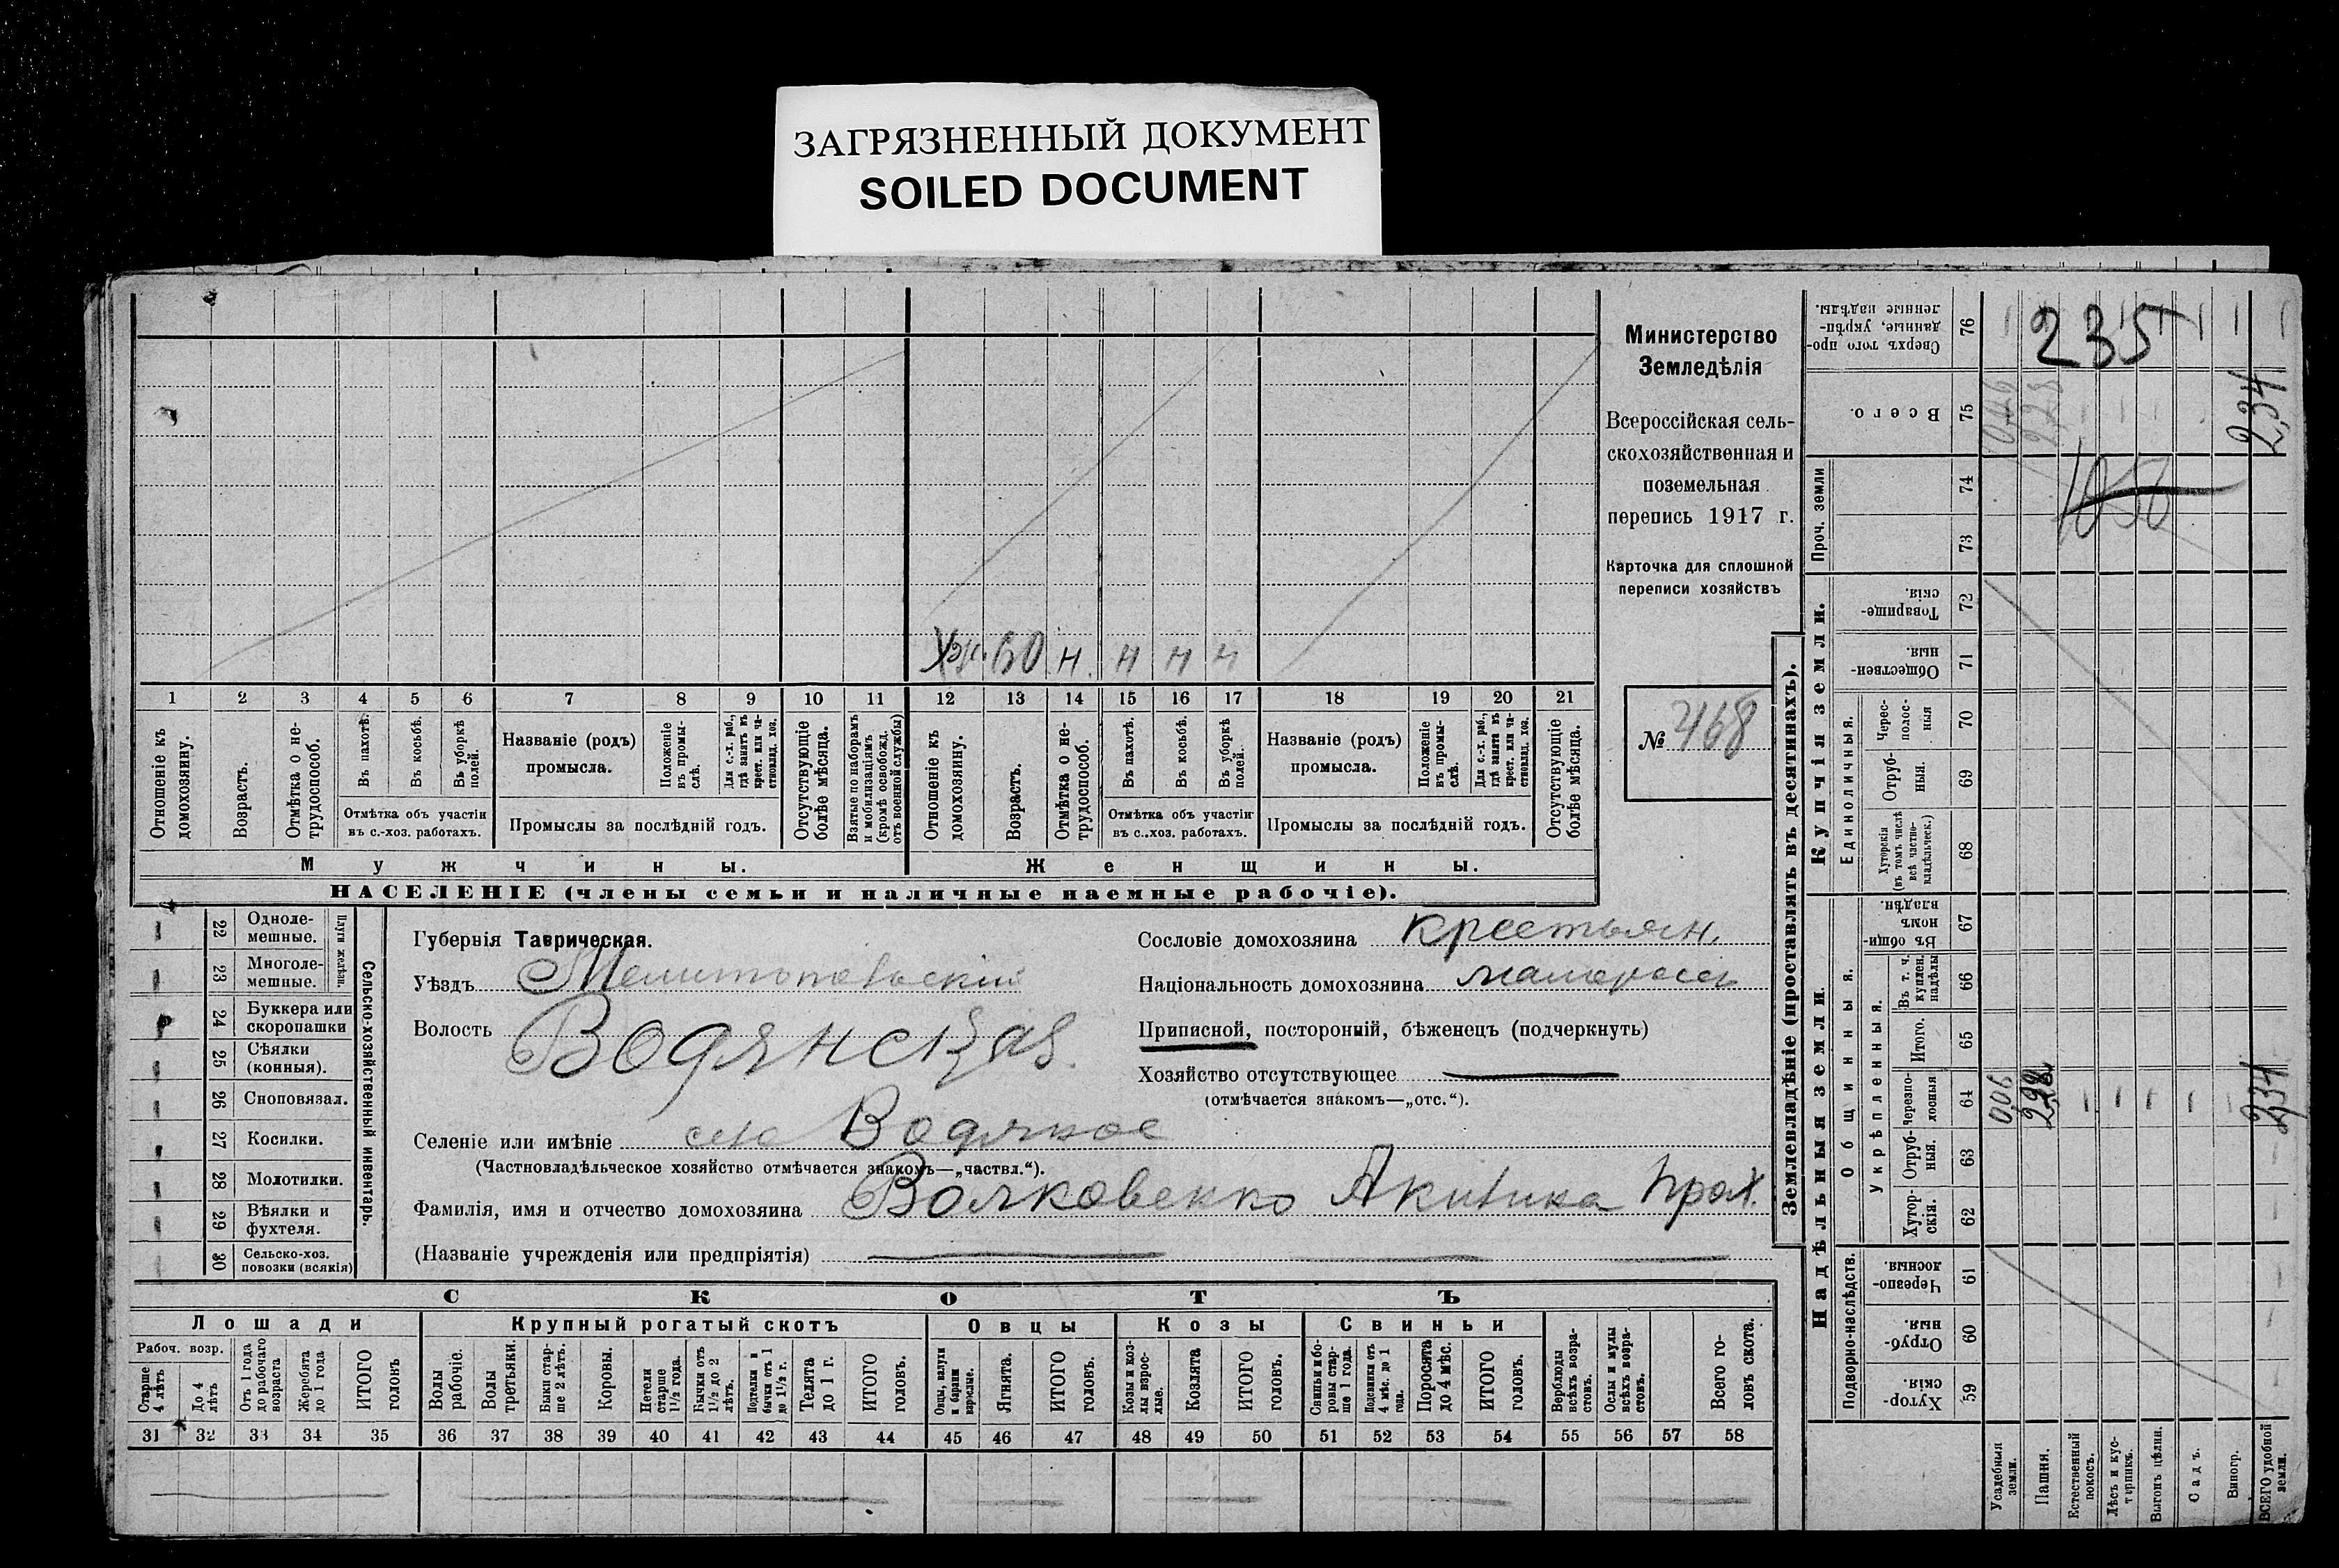 ЗАГРЯЗНЕННЫЙ ДОКУМЕНТ
SOILED DOCUMENT
60 н н н н
1 2 3 4 5 6 7 8 9 10 11 12 13 14 15 16 17 18 19 20 21
Отношеніе къ домохозяину.
Возрастъ.
Отмѣтка о нетрудоспособ.
Въ пахотѣ.
Въ косьбѣ.
Въ уборкѣ полей.
Отмѣтка объ участіи
въ с.-хоз. работахъ.
Названіе (родъ)
промысла.
Положеніе въ промыслѣ.
Для с.-х. раб., гдѣ занятъ въ крест. или частновлад. хоз.
Промыслы за послѣдній годъ.
Отсутствующіе болѣе мѣсяца.
Взятые по наборамъ и мобилизаціямъ (кромѣ освобожд. отъ военной службы)
Отношеніе къ домохозяину.
Возрастъ.
Отмѣтка о нетрудоспособ.
Въ пахотѣ.
Въ косьбѣ.
Въ уборкѣ полей.
Отмѣтка объ участіи
въ с.-хоз. работахъ.
Названіе (родъ)
промысла.
Положеніе въ промыслѣ.
Для с.-х. раб., гдѣ занята въ крест. или частновлад. хоз.
Промыслы за послѣдній годъ.
Отсутствующіе болѣе мѣсяца.
Мужчины.
Женщины.
НАСЕЛЕНІЕ (члены семьи и наличные наемные рабочіе).
Министерство
Земледѣлія
Всероссійская сель-
скохозяйственная и
поземельная
перепись 1917 г.
Карточка для сплошной
переписи хозяйствъ
№ 468
22 Одноле-
мешные.
23 Многоле-
мешные.
Плуги желѣзн.
24 Буккера или
скоропашки
25 Сѣялки
(конныя).
26 Сноповязал.
27 Косилки.
28 Молотилки.
29 Вѣялки и
фухтеля.
30 Сельско-хоз.
повозки (всякія)
Сельско-хозяйственный инвентарь.
Губернія Таврическая.
Уѣздъ Мелитопольскій
Волость Водянская
Селеніе или имѣніе село Водяное
(Частновладѣльческое хозяйство отмѣчается знакомъ—„частвл.“).
Фамилія, имя и отчество домохозяина Волковенко Акилина Прох.
(Названіе учрежденія или предпріятія)
Сословіе домохозяина крестьян.
Національность домохозяина малоросс
Приписной, посторонній, бѣженецъ (подчеркнуть)
Хозяйство отсутствующее
(отмѣчается знакомъ—„отс.“).
СКОТЪ
Лошади
Крупный рогатый скотъ
Овцы
Козы
Свиньи
Рабоч. возр.
Старше 4 лѣтъ
До 4 лѣтъ
Отъ 1 года до рабочаго возраста
Жеребята до 1 года
ИТОГО головъ
Волы рабочіе.
Волы третьяки.
Быки старше 2 лѣтъ.
Коровы.
Нетели старше 1½ года.
Бычки отъ 1½ до 2 лѣтъ.
Подтелки и бычки отъ 1 до 1½ г.
Телята до 1 г.
ИТОГО головъ.
Овцы, валухи и бараны взрослые.
Ягнята.
ИТОГО головъ.
Козы и козлы взрослые.
Козлята
ИТОГО головъ.
Свиньи и боровы старше 1 года.
Подсвинки отъ 4 мѣс. до 1 года.
Поросята до 4 мѣс.
ИТОГО головъ.
Верблюды всѣхъ возрастовъ.
Ослы и мулы всѣхъ возрастовъ.
Всего головъ скота.
31 32 33 34 35 36 37 38 39 40 41 42 43 44 45 46 47 48 49 50 51 52 53 54 55 56 57 58
Землевладѣніе (проставлять въ десятинахъ).
Сверхъ того проданные, укрѣпленные надѣлы. 76
235
Всего. 75
2,34
Проч. земли
74
73
1056
Купчія земли.
Товарищескія. 72
Общественныя. 71
Единоличныя.
Чересполосныя 70
Отрубныя. 69
Хуторскія (въ томъ числѣ всѣ частновладѣльческ.) 68
Надѣльныя земли.
Общинныя.
Въ общинномъ владѣн. 67
Укрѣпленныя.
Въ т. ч. куплен. надѣлы 66
Итого. 65
черезполосныя 64
0,06 2,28 2,34
Отрубныя. 63
Хуторскія. 62
Подворно-наслѣдств.
Черезполосныя 61
Отрубныя 60
Хуторскія. 59
Усадебныя земли.
Пашня.
Естественный покосъ.
Лѣсъ и кустарникъ.
Выгонъ цѣлин.
Садъ.
Виногр.
ВСЕГО удобной земли.